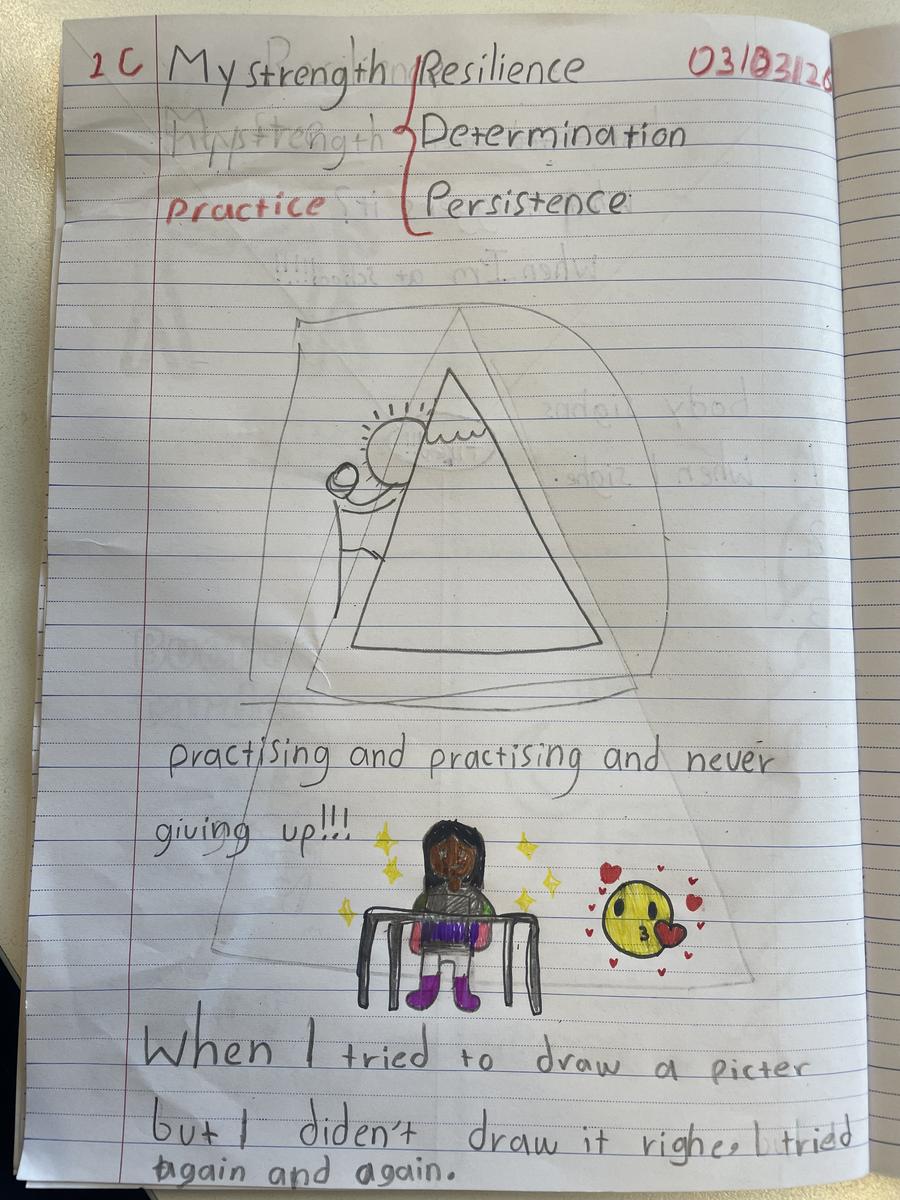 1C My strength Resilience 03/03/26
My strength Determination
practice Persistence
practising and practising and never
giving up!!!
When I tried to draw a picter
but I diden't draw it righe, I tried
again and again.